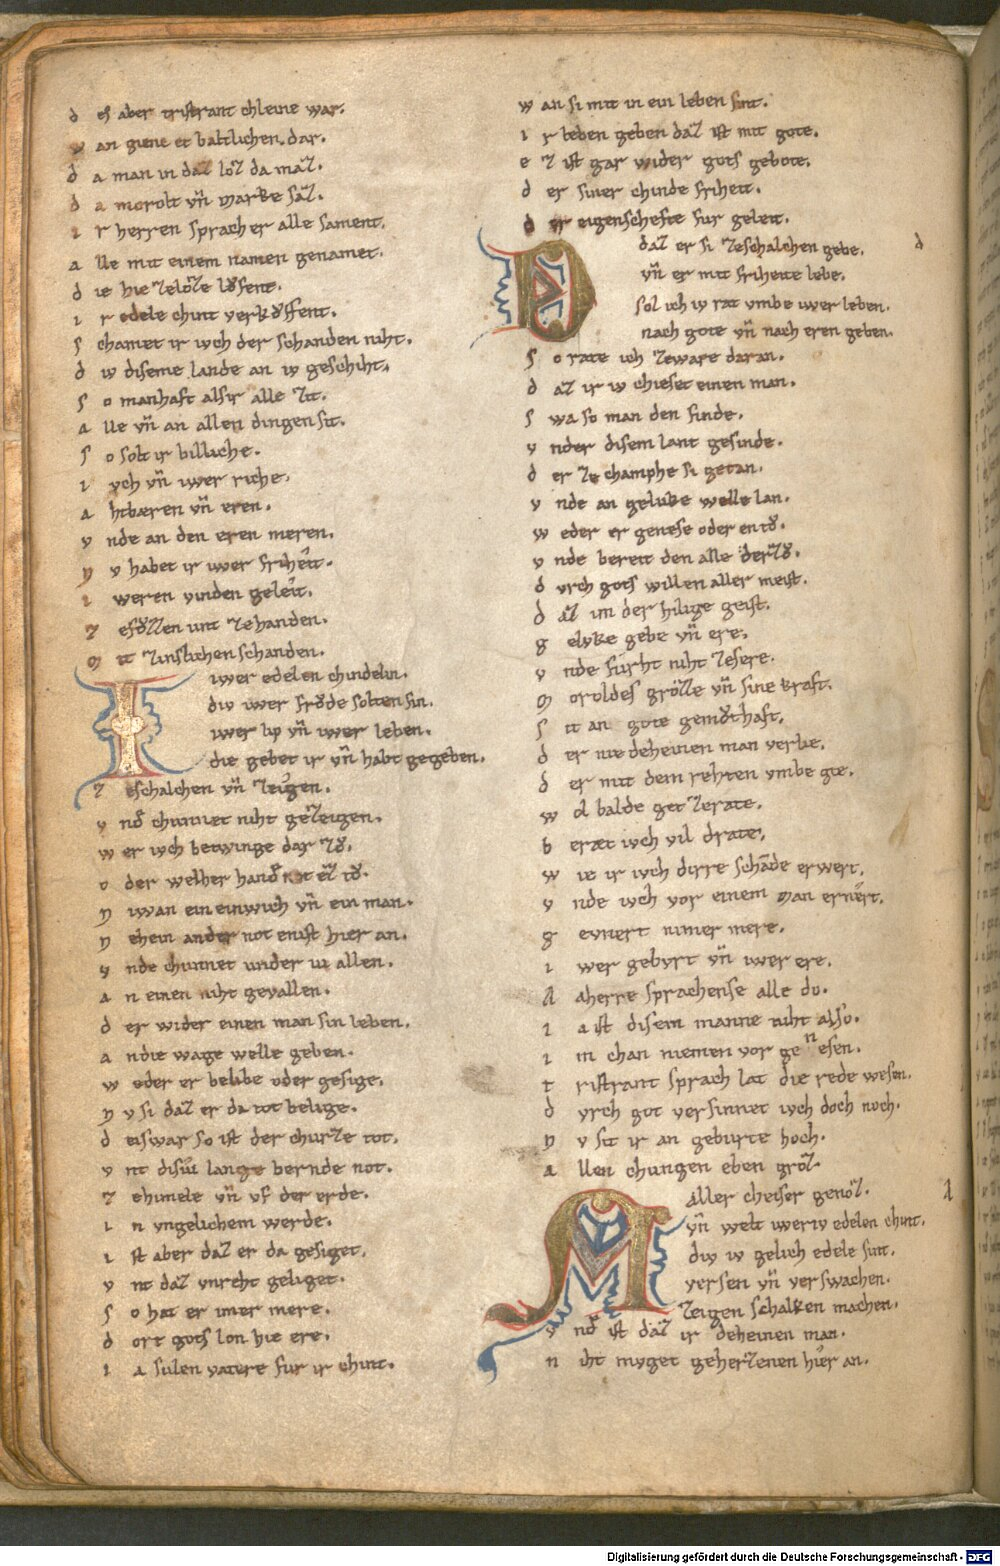 d es aber tristrant chleine war.
v an giene er baltlichen. dar.
d a man in daz loz da maz.
d a morolt vn̄ marke saz.
i r herren sprach er alle sament.
a lle mit einem namen genamet.
d ie hie zelŏze lŏfent.
i r edele chint verkŏffent.
s chamet ir iwch der schanden niht.
d iv diseme lande an iv geschiht.
s o manhaft als ir alle zit.
a lle vn̄ an allen dingen sit.
s o solt ir billiche.
i vch vn̄ iwer riche.
a htbæren vn̄ eren.
v nde an den eren meren.
n v habet ir iwer friheit.
i weren vinden geleit.
z efŏzzen unt zehanden.
m it zinslichen schanden.
I iwer edelen chindelin.
div iwer frŏde solten sin.
iwer lip vn̄ iwer leben.
die gebet ir vn̄ habt gegeben.
z eschalchen vn̄ zeigen.
v nd chunnet niht gezeigen.
w er iwch betwinge dar zŏ.
o der welher hand not ez tŏ.
n iwan ein einwich vn̄ ein man.
n ehein ander not enist hier an.
v nde chunnet under iu allen.
a n einen niht gevallen.
d er wider einen man sin leben.
a n die wage welle geben.
w eder er belibe oder gesige.
n v si daz er da tot belige.
d eiswar so ist der churze tot.
v nt disiu lange bernde not.
z ehimele vn̄ vf der erde.
i n vngelichem werde.
i st aber daz er da gesiget.
v nt daz vnreht geliget.
s o hat er imer mere.
d ort gots lon hie ere.
i a sulen vatere fur ir chint.
w an si mit in ein leben sint.
i r leben geben daz ist mit gote.
e z ist gar wider gots gebote.
d er siner chinde friheit.
d er eigenschefte fur geleit.
D daz er si zeschalchen gebe. d
vn̄ er mit friheite lebe.
sol ich iv rat vmbe iwer leben.
nach gote vn̄ nach eren geben.
s o rate ich zeware daran.
d az ir iv chieset einen man.
s wa so man den finde.
v nder disem lant gesinde.
d er ze champhe si getan.
v nde an gelukke welle lan.
w eder er genese oder entŏ.
v nde bereit den alle derzŏ.
d vrch gots willen aller meist.
d az im der hilige geist.
g elvke gebe vn̄ ere.
v nde furht niht zesere.
m oroldes grŏzze vn̄ sine kraft.
s it an gote gemŏthaft.
d er nie deheinen man verlie.
d er mit dem rehten vmbe gie.
w ol balde get zerate.
b eræt iwch vil drate.
w ie ir iwch dirre schāde erwert.
v nde iwch vor einem man ernert.
g evnert nimer mere.
i wer gebvrt vn̄ iwer ere.
A aherre sprachen se alle do.
i a ist disem manne niht also.
i m chan niemen vor genesen.
t ristrant sprach lat die rede wesen.
d vrch got versinnet iwch doch noch.
n v sit ir an geburte hoch.
a llen chungen eben groz
A aller cheiser genoz. A
vn̄ welt iwer iv edelen chint.
div iv gelich edele sint.
versen vn̄ verswachen.
zeigen schalken machen.
v nd ist daz ir deheinen man.
n iht myget geherzenen hier an.
Digitalisierung gefördert durch die Deutsche Forschungsgemeinschaft - DFG